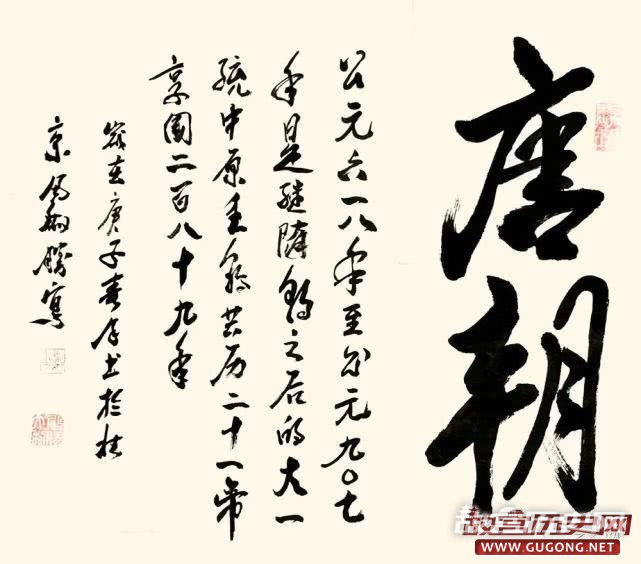 唐朝
公元六一八年至公元九〇七
年是继隋朝之后的大一
统中原王朝共历二十一帝
享国二百八十九年
岁在庚子春书於
京腾写
故宫历史网
WWW.GUGONG.NET